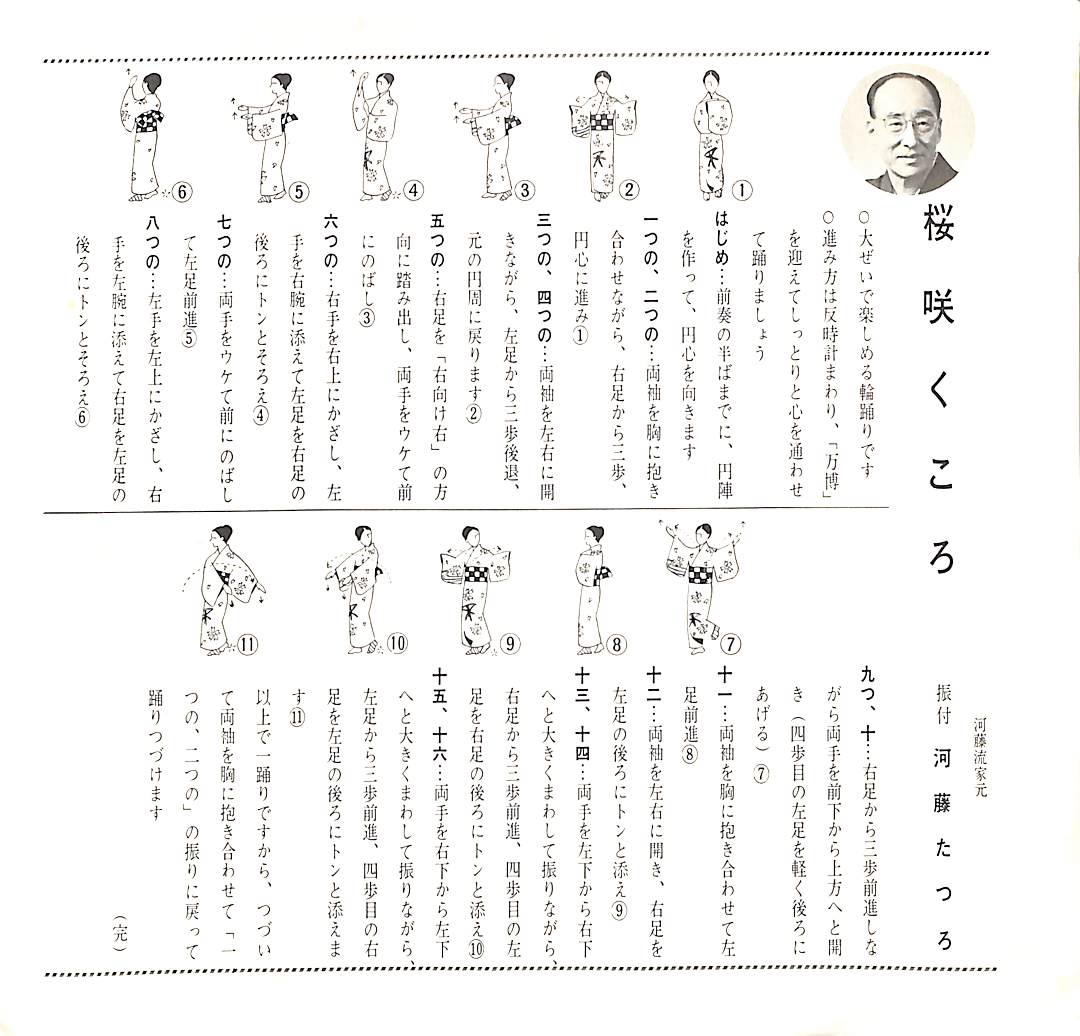 桜咲くころ
河藤流家元
振付 河藤たつろ
○大ぜいで楽しめる輪踊りです
○進み方は反時計まわり、「万博」
を迎えてしっとりと心を通わせ
て踊りましょう
はじめ…前奏の半ばまでに、円陣
を作って、円心を向きます
一つの、二つの…両袖を胸に抱き
合わせながら、右足から三歩、
円心に進み①
三つの、四つの…両袖を左右に開
きながら、左足から三歩後退、
元の円周に戻ります②
五つの…右足を「右向け右」の方
向に踏み出し、両手をウケて前
にのばし③
六つの…右手を右上にかざし、左
手を右腕に添えて左足を右足の
後ろにトンとそろえ④
七つの…両手をウケて前にのばし
て左足前進⑤
八つの…左手を左上にかざし、右
手を左腕に添えて右足を左足の
後ろにトンとそろえ⑥
①
②
③
④
⑤
⑥
九つ、十…右足から三歩前進しな
がら両手を前下から上方へと開
き（四歩目の左足を軽く後ろに
あげる）⑦
十一…両袖を胸に抱き合わせて左
足前進⑧
十二…両袖を左右に開き、右足を
左足の後ろにトンと添え⑨
十三、十四…両手を左下から右下
へと大きくまわして振りながら、
右足から三歩前進、四歩目の左
足を右足の後ろにトンと添え⑩
十五、十六…両手を右下から左下
へと大きくまわして振りながら、
左足から三歩前進、四歩目の右
足を左足の後ろにトンと添えま
す⑪
以上で一踊りですから、つづい
て両袖を胸に抱き合わせて「一
つの、二つの」の振りに戻って
踊りつづけます
（完）
⑦
⑧
⑨
⑩
⑪